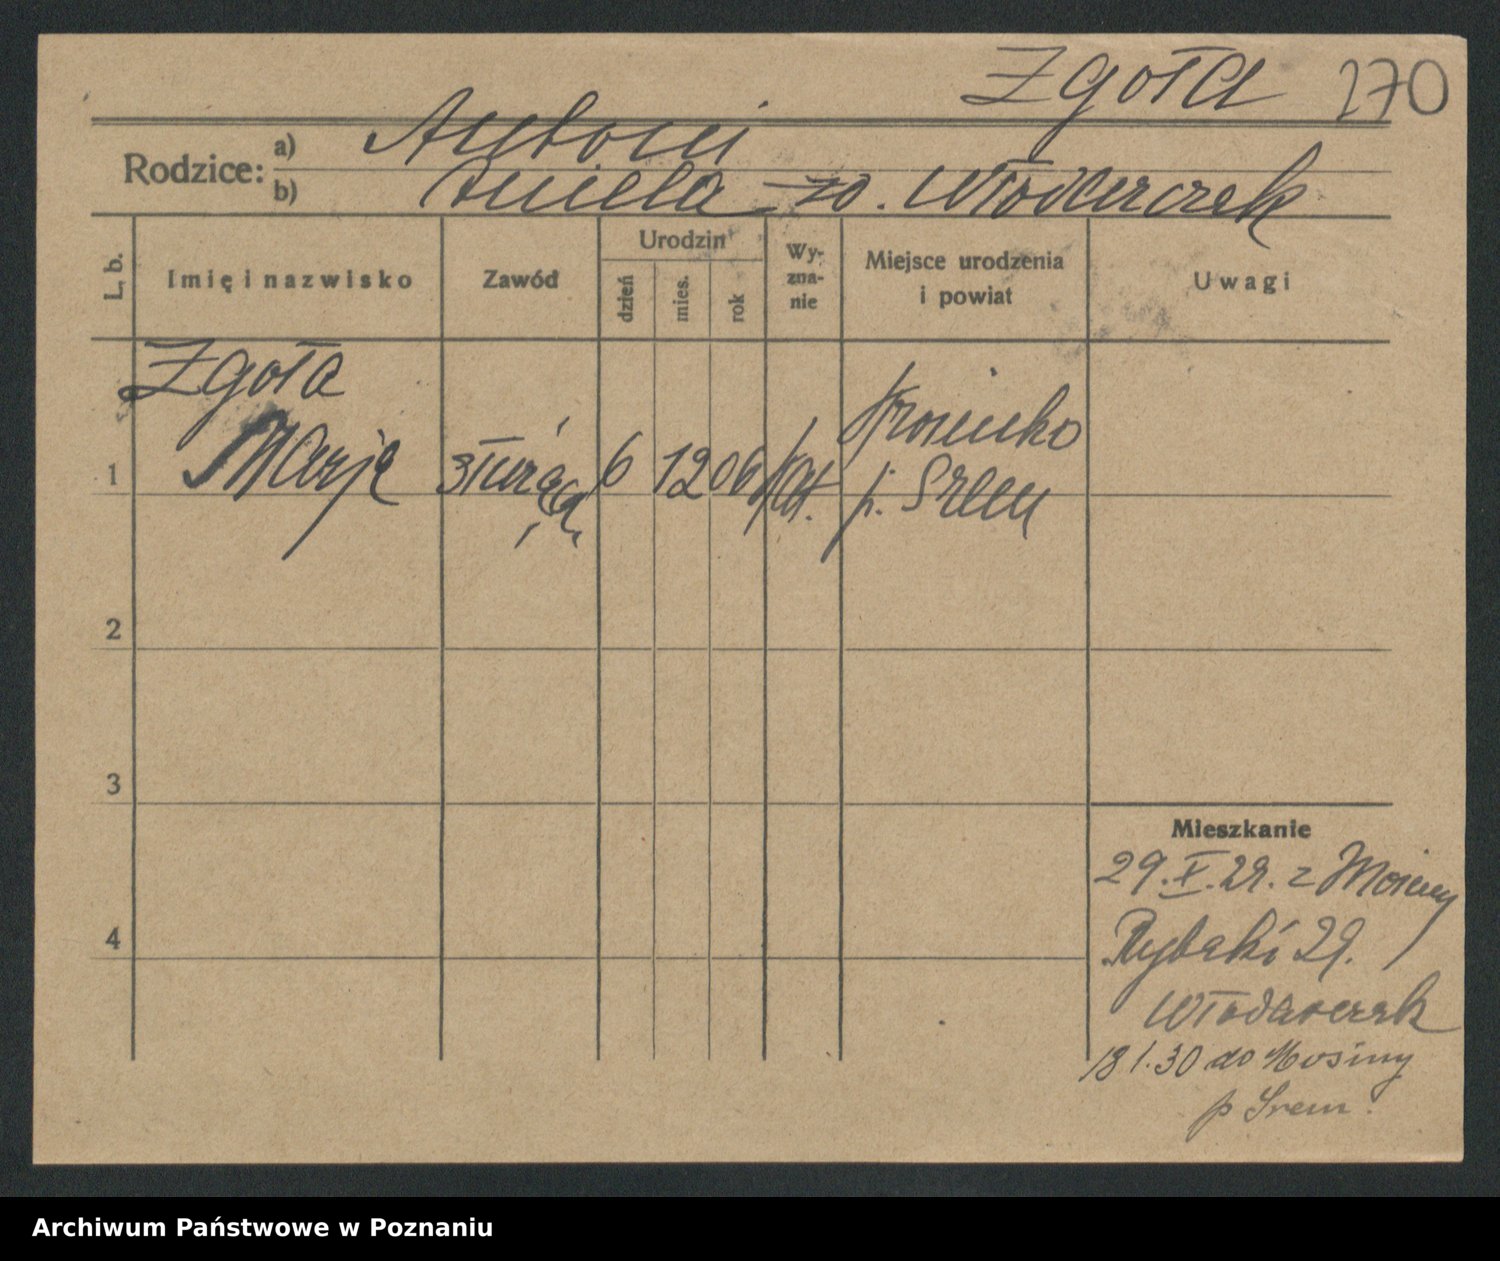 Zgoła 270
Rodzice: a) Antoni
b) Aniela zd. Włodarczek
L. b. Imię i nazwisko Zawód Urodzin dzień mies. rok Wy-zna-nie Miejsce urodzenia i powiat Uwagi
Zgoła
1 Marja służąca 6 12 06 kat. Krosinko
p. Śrem
2
3
Mieszkanie
29. X. 29. z Mosiny
4 Rybaki 29.
Włodarczak
18 1.30 do Mosiny
p Śrem.
Archiwum Państwowe w Poznaniu